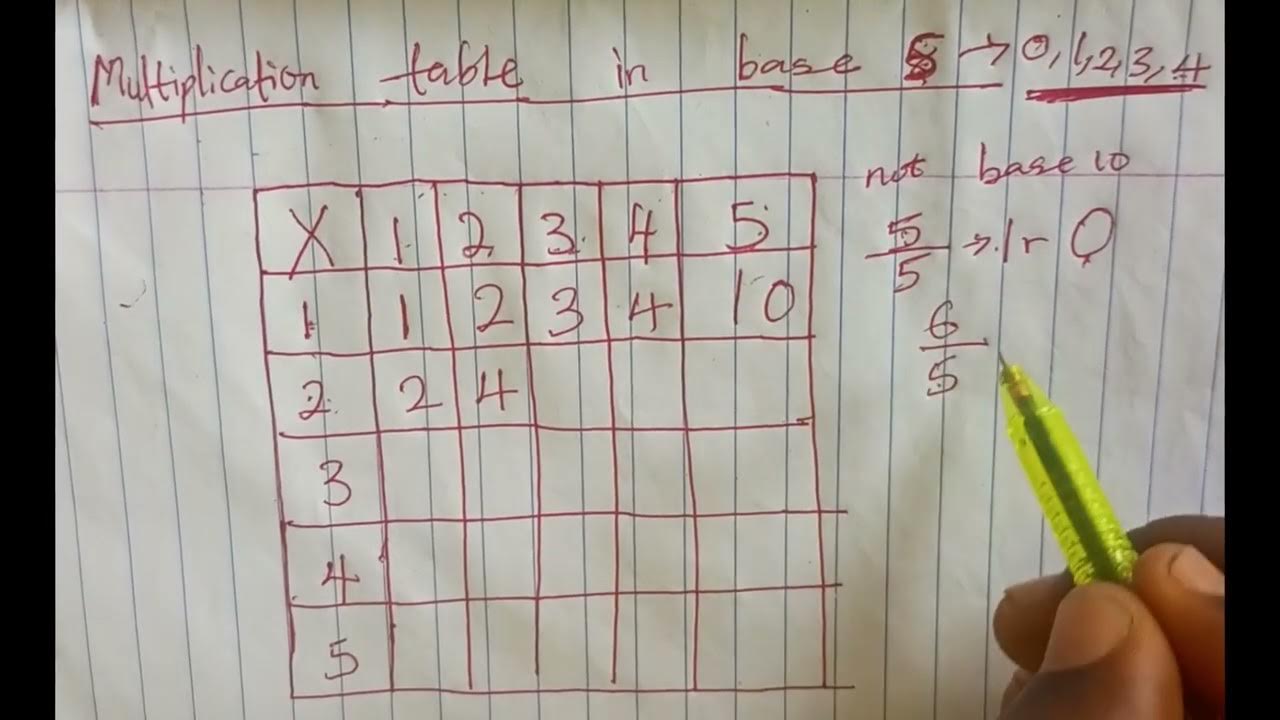 Multiplication table in base 5 → 0, 1, 2, 3, 4
not base 10
X 1 2 3 4 5
5/5 → 1 r 0
1 1 2 3 4 10
6/5
2 2 4
3
4
5